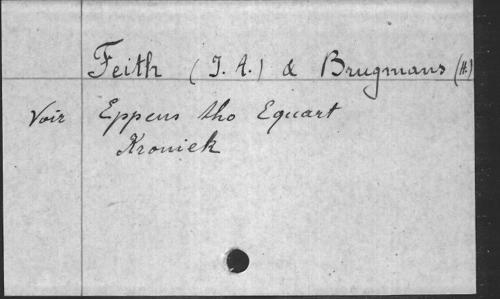 Feith (J. A.) & Brugmans (H.)
Voir Eppens tho Equart
Kroniek